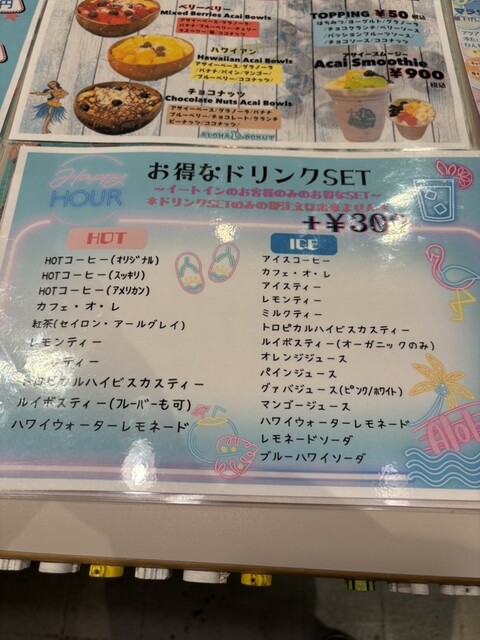 ベリーベリー
Mixed Berries Acai Bowls
ハワイアン
Hawaiian Acai Bowls
アサイーベース/グラノーラ
バナナ/パイン/マンゴー/
ブルーベリー/ココナッツ/
チョコナッツ
Chocolate Nuts Acai Bowls
アサイーベース/グラノーラ/バナナ
ブルーベリー/チョコレート/クランチ
ピーナッツ/ココナッツ/
ALOHA DONUT
TOPPING ¥50 税込
はちみつ/ヨーグルト/グラノーラ
/チョコクランチ/ベリーソース
/パッションフルーツソース
/チョコソース/ココナッツ
アサイースムージー
Acai Smoothie
¥900
税込
Happy
HOUR
お得なドリンクSET
~イートインのお客様のみのお得なSET~
*ドリンクSETのみの御注文は出来ません*
+¥300
HOT
HOTコーヒー(オリジナル)
HOTコーヒー(スッキリ)
HOTコーヒー(アメリカン)
カフェ・オ・レ
紅茶(セイロン・アールグレイ)
レモンティー
ティー
トロピカルハイビスカスティー
ルイボスティー(フレーバーも可)
ハワイウォーターレモネード
ICE
アイスコーヒー
カフェ・オ・レ
アイスティー
レモンティー
ミルクティー
トロピカルハイビスカスティー
ルイボスティー(オーガニックのみ)
オレンジジュース
パインジュース
グァバジュース(ピンク/ホワイト)
マンゴージュース
ハワイウォーターレモネード
レモネードソーダ
ブルーハワイソーダ